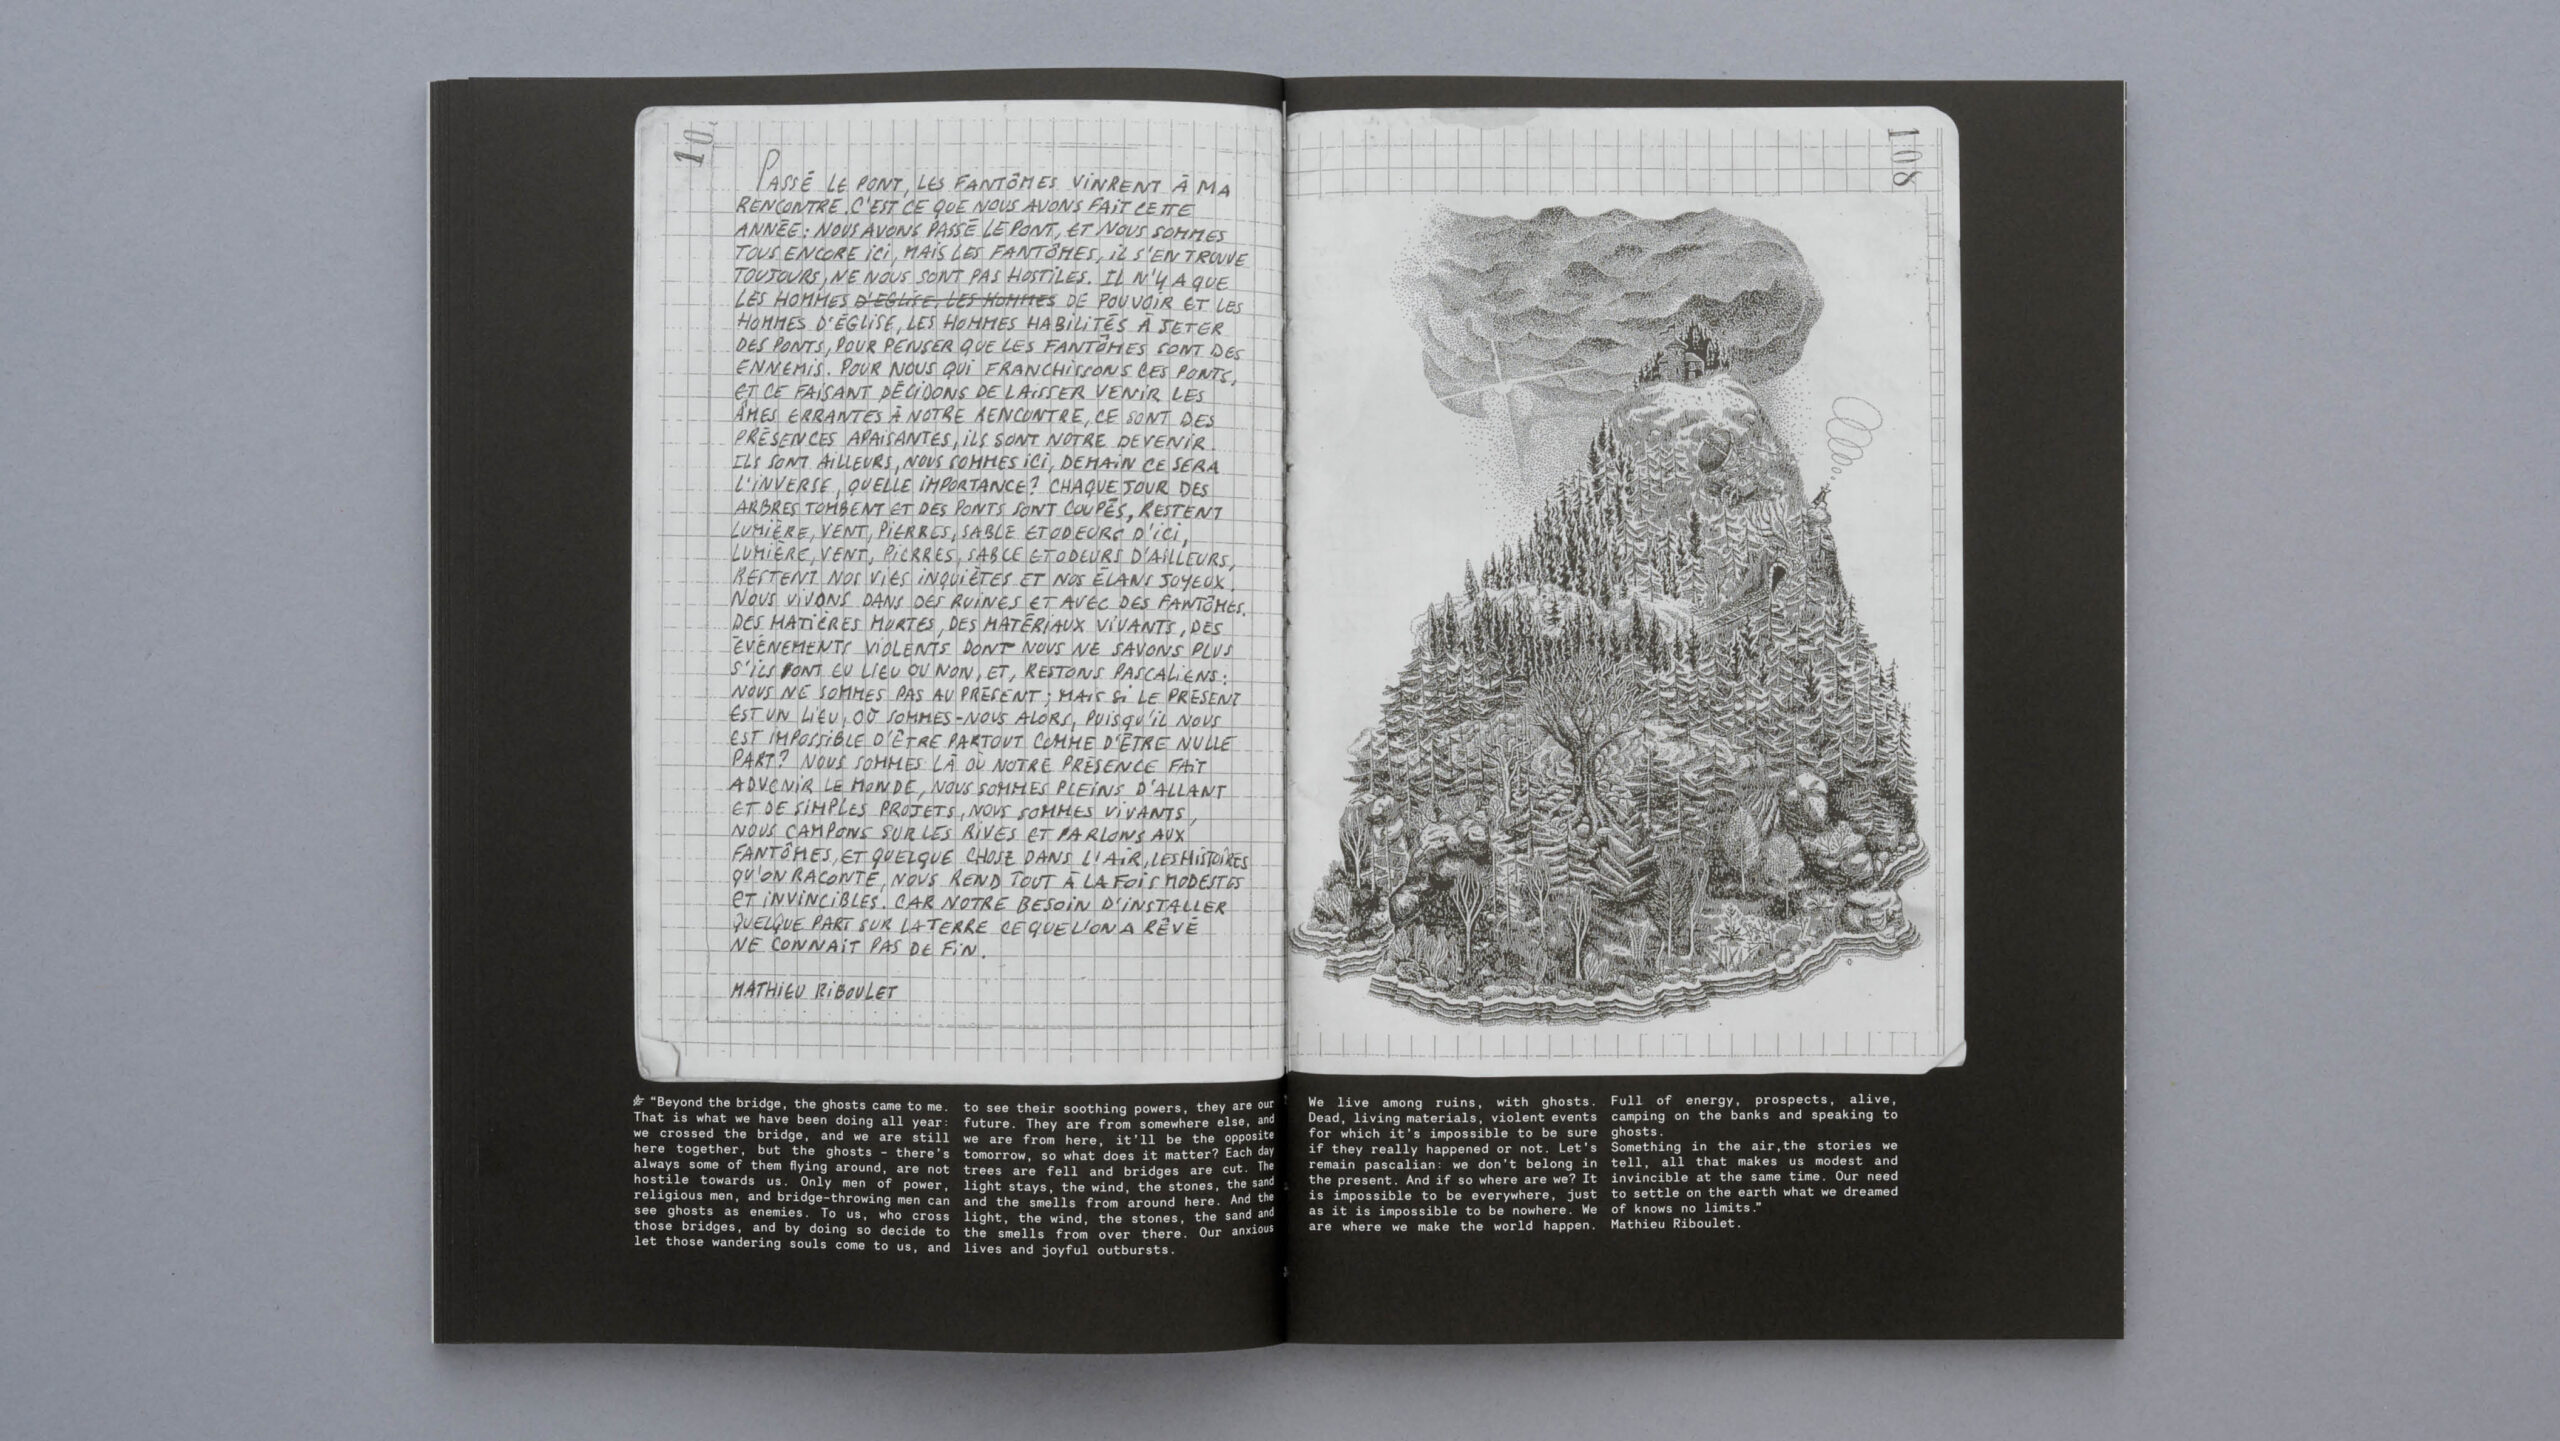 10
PASSÉ LE PONT, LES FANTÔMES VINRENT À MA
RENCONTRE. C'EST CE QUE NOUS AVONS FAIT CETTE
ANNÉE : NOUS AVONS PASSÉ LE PONT, ET NOUS SOMMES
TOUS ENCORE ICI, MAIS LES FANTÔMES, IL S'EN TROUVE
TOUJOURS, NE NOUS SONT PAS HOSTILES. IL N'Y A QUE
LES HOMMES D'EGLISE, LES HOMMES DE POUVOIR ET LES
HOMMES D'ÉGLISE, LES HOMMES HABILITÉS À JETER
DES PONTS, POUR PENSER QUE LES FANTÔMES SONT DES
ENNEMIS. POUR NOUS QUI FRANCHISSONS CES PONTS,
ET CE FAISANT DÉCIDONS DE LAISSER VENIR LES
ÂMES ERRANTES À NOTRE RENCONTRE, CE SONT DES
PRÉSENCES APAISANTES, ILS SONT NOTRE DEVENIR.
ILS SONT AILLEURS, NOUS SOMMES ICI, DEMAIN CE SERA
L'INVERSE, QUELLE IMPORTANCE ? CHAQUE JOUR DES
ARBRES TOMBENT ET DES PONTS SONT COUPÉS, RESTENT
LUMIÈRE, VENT, PIERRES, SABLE ET ODEURS D'ICI,
LUMIÈRE, VENT, PIERRES, SABLE ET ODEURS D'AILLEURS,
RESTENT NOS VIES INQUIÈTES ET NOS ÉLANS JOYEUX.
NOUS VIVONS DANS DES RUINES ET AVEC DES FANTÔMES.
DES MATIÈRES MORTES, DES MATÉRIAUX VIVANTS, DES
ÉVÉNEMENTS VIOLENTS DONT NOUS NE SAVONS PLUS
S'ILS ONT EU LIEU OU NON, ET, RESTONS PASCALIENS :
NOUS NE SOMMES PAS AU PRÉSENT ; MAIS SI LE PRÉSENT
EST UN LIEU, OÙ SOMMES-NOUS ALORS, PUISQU'IL NOUS
EST IMPOSSIBLE D'ÊTRE PARTOUT COMME D'ÊTRE NULLE
PART ? NOUS SOMMES LÀ OÙ NOTRE PRÉSENCE FAIT
ADVENIR LE MONDE, NOUS SOMMES PLEINS D'ALLANT
ET DE SIMPLES PROJETS, NOUS SOMMES VIVANTS,
NOUS CAMPONS SUR LES RIVES ET PARLONS AUX
FANTÔMES, ET QUELQUE CHOSE DANS L'AIR, LES HISTOIRES
QU'ON RACONTE, NOUS REND TOUT À LA FOIS MODESTES
ET INVINCIBLES. CAR NOTRE BESOIN D'INSTALLER
QUELQUE PART SUR LA TERRE CE QUE L'ON A RÊVÉ
NE CONNAIT PAS DE FIN.
MATHIEU RIBOULET
108
"Beyond the bridge, the ghosts came to me.
That is what we have been doing all year:
we crossed the bridge, and we are still
here together, but the ghosts – there's
always some of them flying around, are not
hostile towards us. Only men of power,
religious men, and bridge-throwing men can
see ghosts as enemies. To us, who cross
those bridges, and by doing so decide to
let those wandering souls come to us, and
to see their soothing powers, they are our
future. They are from somewhere else, and
we are from here, it'll be the opposite
tomorrow, so what does it matter? Each day
trees are fell and bridges are cut. The
light stays, the wind, the stones, the sand
and the smells from around here. And the
light, the wind, the stones, the sand and
the smells from over there. Our anxious
lives and joyful outbursts.
We live among ruins, with ghosts.
Dead, living materials, violent events
for which it's impossible to be sure
if they really happened or not. Let's
remain pascalian: we don't belong in
the present. And if so where are we? It
is impossible to be everywhere, just
as it is impossible to be nowhere. We
are where we make the world happen.
Full of energy, prospects, alive,
camping on the banks and speaking to
ghosts.
Something in the air,the stories we
tell, all that makes us modest and
invincible at the same time. Our need
to settle on the earth what we dreamed
of knows no limits."
Mathieu Riboulet.